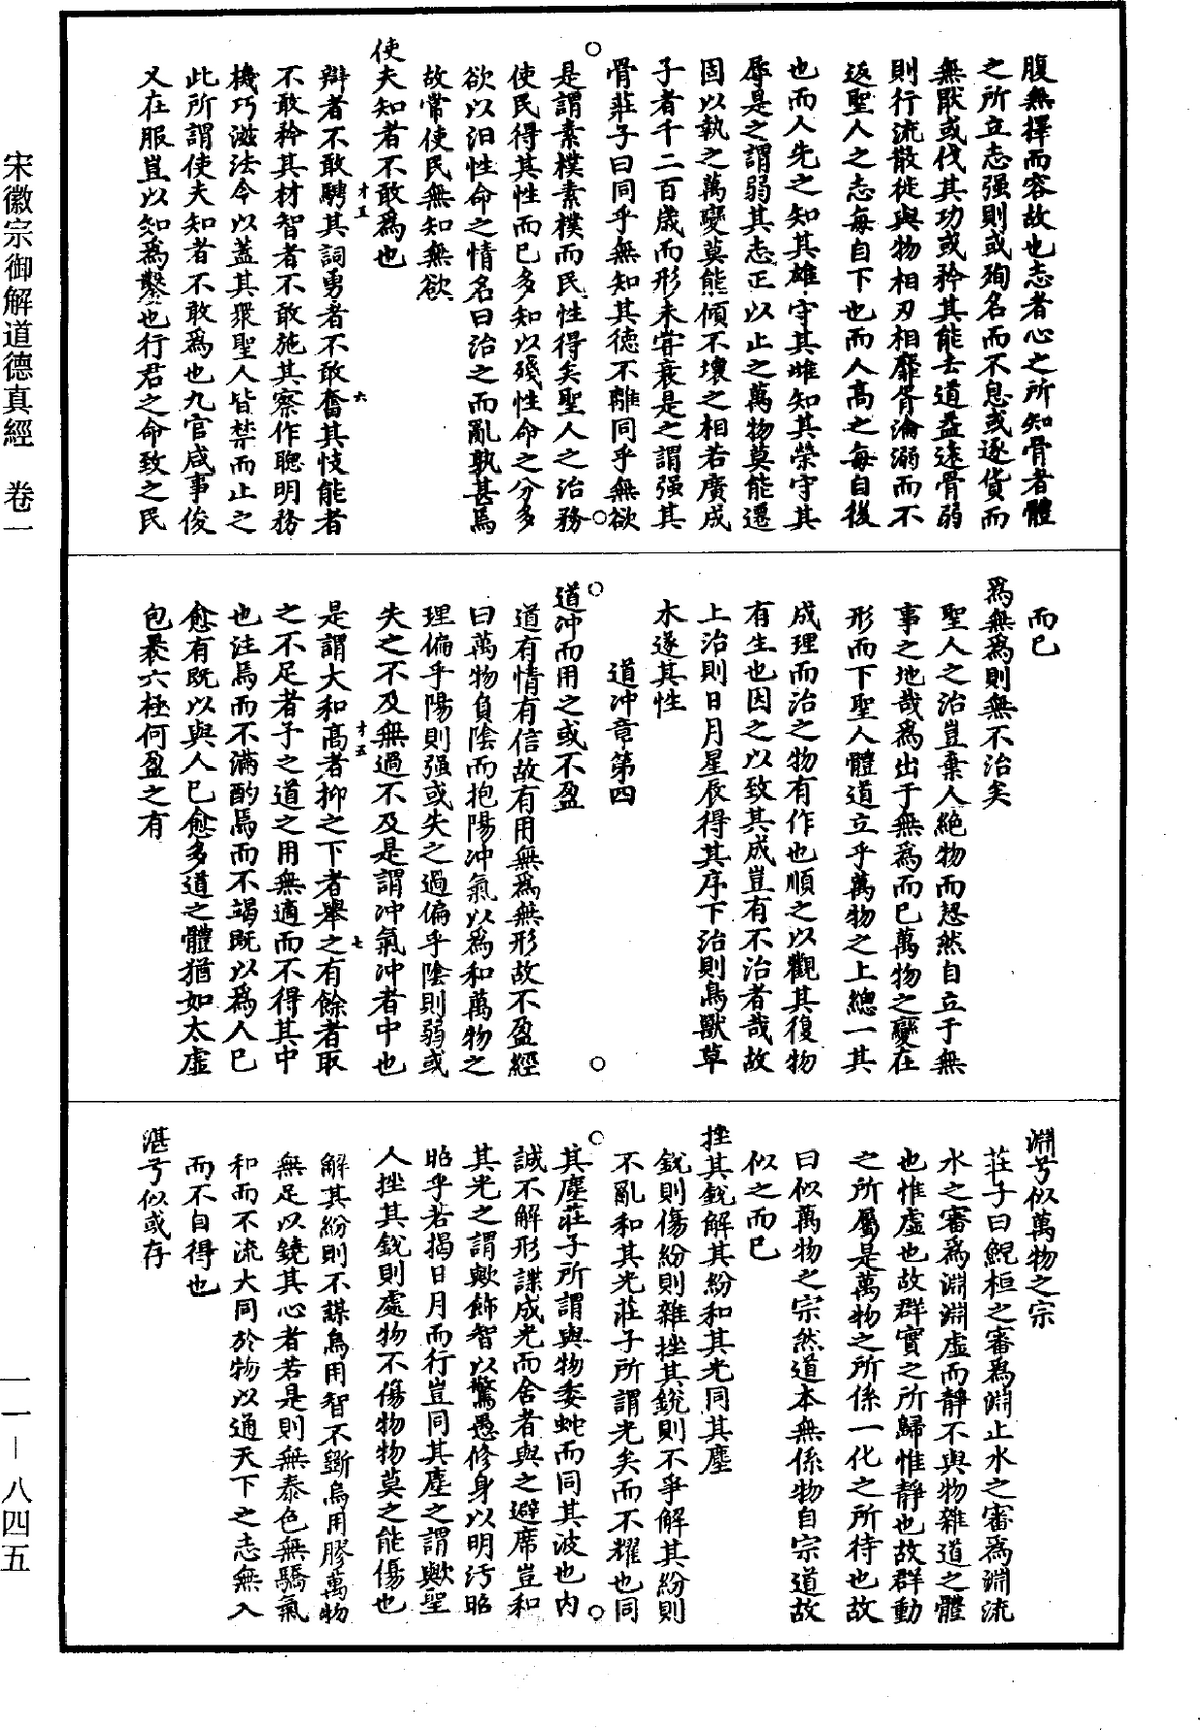 宋徽宗御解道德真經　卷一
腹無擇而容故也志者心之所知骨者體
之所立志强則或殉名而不息或逐貨而
無厭或伐其功或矜其能去道益遠骨弱
則行流散徙與物相刃相靡胥淪溺而不
返聖人之志每自下也而人高之每自後
也而人先之知其雄守其雌知其榮守其
辱是之謂弱其志正以止之萬物莫能遷
固以執之萬變莫能傾不壞之相若廣成
子者千二百歲而形未甞衰是之謂强其
骨莊子曰同乎無知其德不離同乎無欲
是謂素樸素樸而民性得矣聖人之治務
使民得其性而已多知以殘性命之分多
欲以汩性命之情名曰治之而亂孰甚焉
故常使民無知無欲
使夫知者不敢爲也
才五
辯者不敢騁其詞勇者不敢奮其忮能者
六
不敢矜其材智者不敢施其察作聰明務
機巧滋法令以蓋其衆聖人皆禁而止之
此所謂使夫知者不敢爲也九官咸事俊
乂在服豈以知爲鑿也行君之命致之民
而已
爲無爲則無不治矣
聖人之治豈棄人絶物而恝然自立于無
事之地哉爲出于無爲而已萬物之變在
形而下聖人體道立乎萬物之上總一其
成理而治之物有作也順之以觀其復物
有生也因之以致其成豈有不治者哉故
上治則日月星辰得其序下治則鳥獸草
木遂其性
道冲章第四
道冲而用之或不盈
道有情有信故有用無爲無形故不盈經
曰萬物負陰而抱陽冲氣以爲和萬物之
理偏乎陽則强或失之過偏乎陰則弱或
失之不及無過不及是謂冲氣冲者中也
才五
是謂大和高者抑之下者舉之有餘者取
七
之不足者予之道之用無適而不得其中
也注焉而不滿酌焉而不竭既以爲人已
愈有既以與人已愈多道之體猶如太虛
包褁六極何盈之有
淵兮似萬物之宗
莊子曰鯢桓之審爲淵止水之審爲淵流
水之審爲淵淵虛而靜不與物雜道之體
也惟虛也故群實之所歸惟靜也故群動
之所屬是萬物之所係一化之所待也故
曰似萬物之宗然道本無係物自宗道故
似之而已
挫其銳解其紛和其光同其塵
銳則傷紛則雜挫其銳則不爭解其紛則
不亂和其光莊子所謂光矣而不耀也同
其塵莊子所謂與物委蛇而同其波也内
誠不解形諜成光而舍者與之避席豈和
其光之謂歟飾智以驚愚修身以明汚昭
昭乎若揭日月而行豈同其塵之謂歟聖
人挫其銳則處物不傷物物莫之能傷也
解其紛則不謀烏用智不斲烏用膠萬物
無足以鐃其心者若是則無泰色無驕氣
和而不流大同於物以通天下之志無入
而不自得也
湛兮似或存
一一—八四五